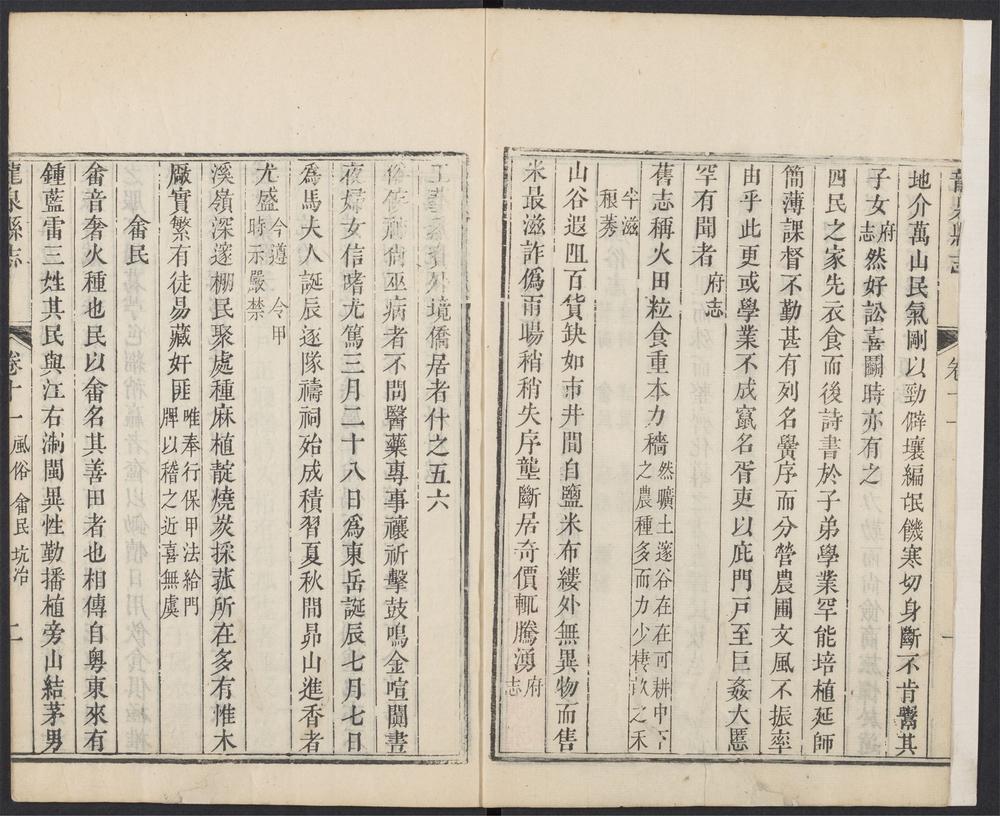 龍泉縣志
卷十一
一
地介萬山民氣剛以勁僻壤編氓饑寒切身斷不肯鬻其
子女府志然好訟喜鬭時亦有之
四民之家先衣食而後詩書於子弟學業罕能培植延師
簡薄課督不勤甚有列名黌序而分營農圃文風不振率
由乎此更或學業不成竄名胥吏以庇門戸至巨姦大慝
罕有聞者府志
舊志稱火田粒食重本力穡然曠土邃谷在在可耕中下之農種多而力少棲畝之禾
半滋稂莠
山谷遐阻百貨缺如市井間自鹽米布縷外無異物而售
米最滋詐僞雨暘稍稍失序壟斷居奇價輒騰湧府志
工藝 境僑居者什之五六
俗 巫病者不問醫藥專事禳祈擊鼓鳴金喧闐晝
夜婦女信嗜尤篤三月二十八日爲東岳誕辰七月七日
爲馬夫人誕辰逐隊禱祠殆成積習夏秋間昴山進香者
尤盛今遵 令甲時示嚴禁
溪嶺深邃棚民聚處種麻植靛燒炭採菰所在多有惟木
厰實繁有徒易藏奸匪唯奉行保甲法給門牌以稽之近喜無虞
畲民
畲音奢火種也民以畲名其善田者也相傳自粤東來有
鍾藍雷三姓其民與江右淛閩異性勤播植旁山結茅男
龍泉縣志
卷十一 風俗 畲民 坑冶
二